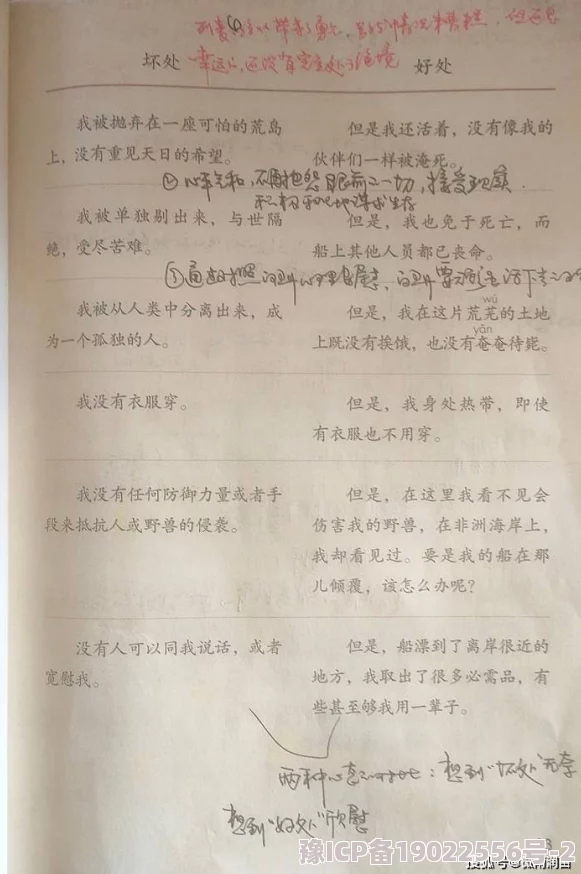 坏处
好处
幸运的，还没有完全处于绝境
我被抛弃在一座可怕的荒岛
上，没有重见天日的希望。
但是我还活着，没有像我的
伙伴们一样被淹死。
②心平气和，不抱怨眼前一切，接受现实
积极地谋求生存
我被单独剔出来，与世隔
绝，受尽苦难。
但是，我也免于死亡，而
船上其他人员都已丧命。
我被从人类中分离出来，成
为一个孤独的人。
但是，我在这片荒芜的土地
wú
上既没有挨饿，也没有奄奄待毙。
yān
我没有衣服穿。
但是，我身处热带，即使
有衣服也不用穿。
我没有任何防御力量或者手
段来抵抗人或野兽的侵袭。
但是，在这里我看不见会
伤害我的野兽，在非洲海岸上，
我却看见过。要是我的船在那
儿倾覆，该怎么办呢？
没有人可以同我说话，或者
宽慰我。
但是，船漂到了离岸很近的
地方，我取出了很多必需品，有
些甚至够我用一辈子。
两种心态的对比：想到“坏处”无奈
想到“好处”欣慰
3
豫ICP备19022556号-2